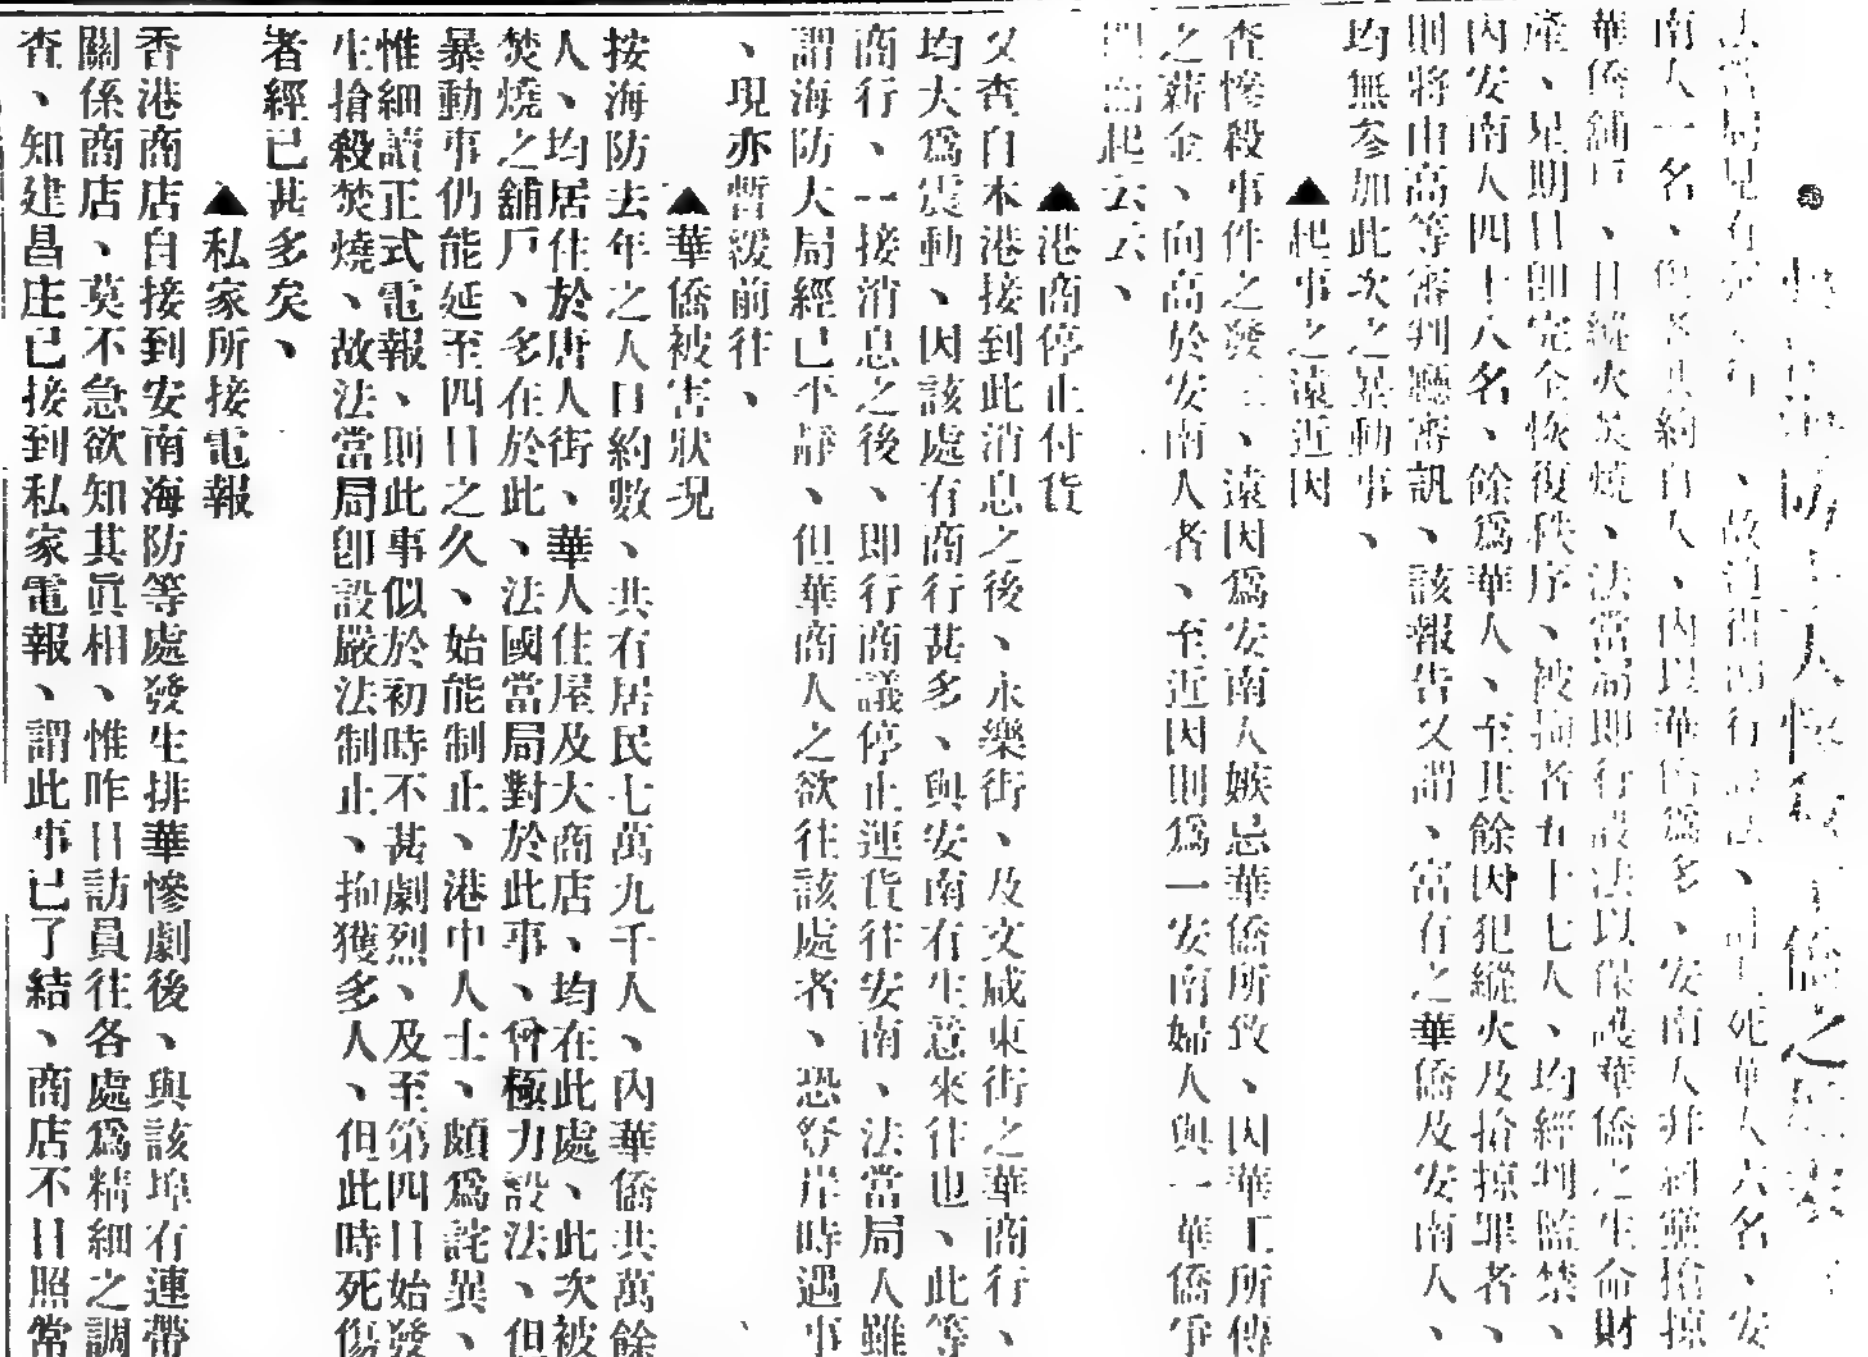 海防土人慘殺華僑之
法當局見有死 故迫得 行 、 死華人六名、安
南人一名、傷者 約百人、內以華僑爲多、安南人非 搶掠
華僑舖戶、且縱火焚燒、法當局即行設法以保護華僑之生命財
產、星期日即完全恢復秩序、被拘者五十七人、均經判監禁、
內安南人四十八名、餘爲華人、至其餘因犯縱火及搶掠罪者、
則將由高等審判廳審訊、該報告又謂、富有之華僑及安南人、
均無參加此次之暴動事、
▲起事之遠近因
查慘殺事件之發生、遠因爲安南人嫉忌華僑所致、因華工所傳
之薪金、向高於安南人者、至近因則爲一安南婦人與一華僑爭
鬥而起云云、
▲港商停止付貨
又查自本港接到此消息之後、永樂街、及文咸東街之華商行、
均大爲震動、因該處有商行甚多、與安南有生意來往也、此等
商行、一接消息之後、即行商議停止運貨往安南、法當局人雖
謂海防大局經已平靜、但華商人之欲往該處者、恐登岸時遇事
、現亦暫緩前往、
▲華僑被害狀況
按海防去年之人口約數、共有居民七萬九千人、內華僑共萬餘
人、均居住於唐人街、華人住屋及大商店、均在此處、此次被
焚燒之舖戶、多在於此、法國當局對於此事、曾極力設法、但
暴動事仍能延至四日之久、始能制止、港中人士、頗爲詫異、
惟細讀正式電報、則此事似於初時不甚劇烈、及至第四日始發
生搶殺焚燒、故法當局即設嚴法制止、拘獲多人、但此時死傷
者經已甚多矣、
▲私家所接電報
香港商店自接到安南海防等處發生排華慘劇後、與該埠有連帶
關係商店、莫不急欲知其眞相、惟昨日訪員往各處爲精細之調
查、知建昌庄已接到私家電報、謂此事已了結、商店不日照常